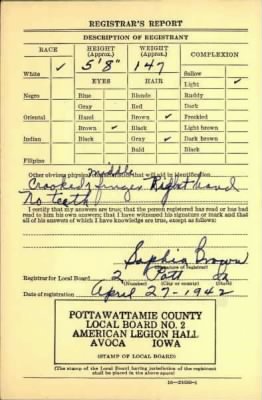 REGISTRAR'S REPORT
DESCRIPTION OF REGISTRANT
RACE HEIGHT (Approx.) WEIGHT (Approx.) COMPLEXION
White ✓ 5'8" 147 Sallow
EYES HAIR Light ✓
Negro Blue Blonde Ruddy
Gray Red Dark
Oriental Hazel Brown ✓ Freckled
Brown ✓ Black Light brown
Indian Black Gray ✓ Dark brown
Bald Black
Filipino
Other obvious physical characteristics that will aid in identification
middle
Crooked finger Right hand
No teeth
I certify that my answers are true; that the person registered has read or has had read to him his own answers; that I have witnessed his signature or mark and that all of his answers of which I have knowledge are true, except as follows:
Sophia Brown
(Signature of registrar)
Registrar for Local Board 2 Pott Ia
(Number) (City or county) (State)
Date of registration April 27-1942
POTTAWATTAMIE COUNTY
LOCAL BOARD NO. 2
AMERICAN LEGION HALL
AVOCA IOWA
(STAMP OF LOCAL BOARD)
(The stamp of the Local Board having jurisdiction of the registrant shall be placed in the above space)